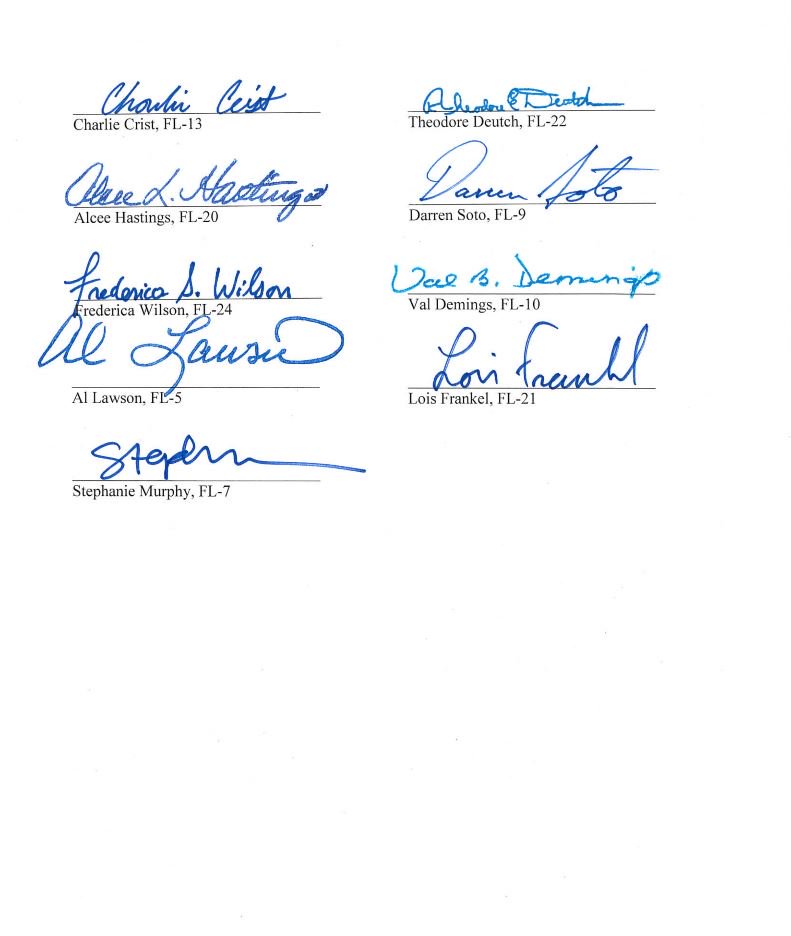 Charlie Crist
Charlie Crist, FL-13
Alcee L. Hastings
Alcee Hastings, FL-20
Frederica S. Wilson
Frederica Wilson, FL-24
Al Lawson
Al Lawson, FL-5
Stephanie
Stephanie Murphy, FL-7
Theodore E Deutch
Theodore Deutch, FL-22
Darren Soto
Darren Soto, FL-9
Val B. Demings
Val Demings, FL-10
Lois Frankel
Lois Frankel, FL-21